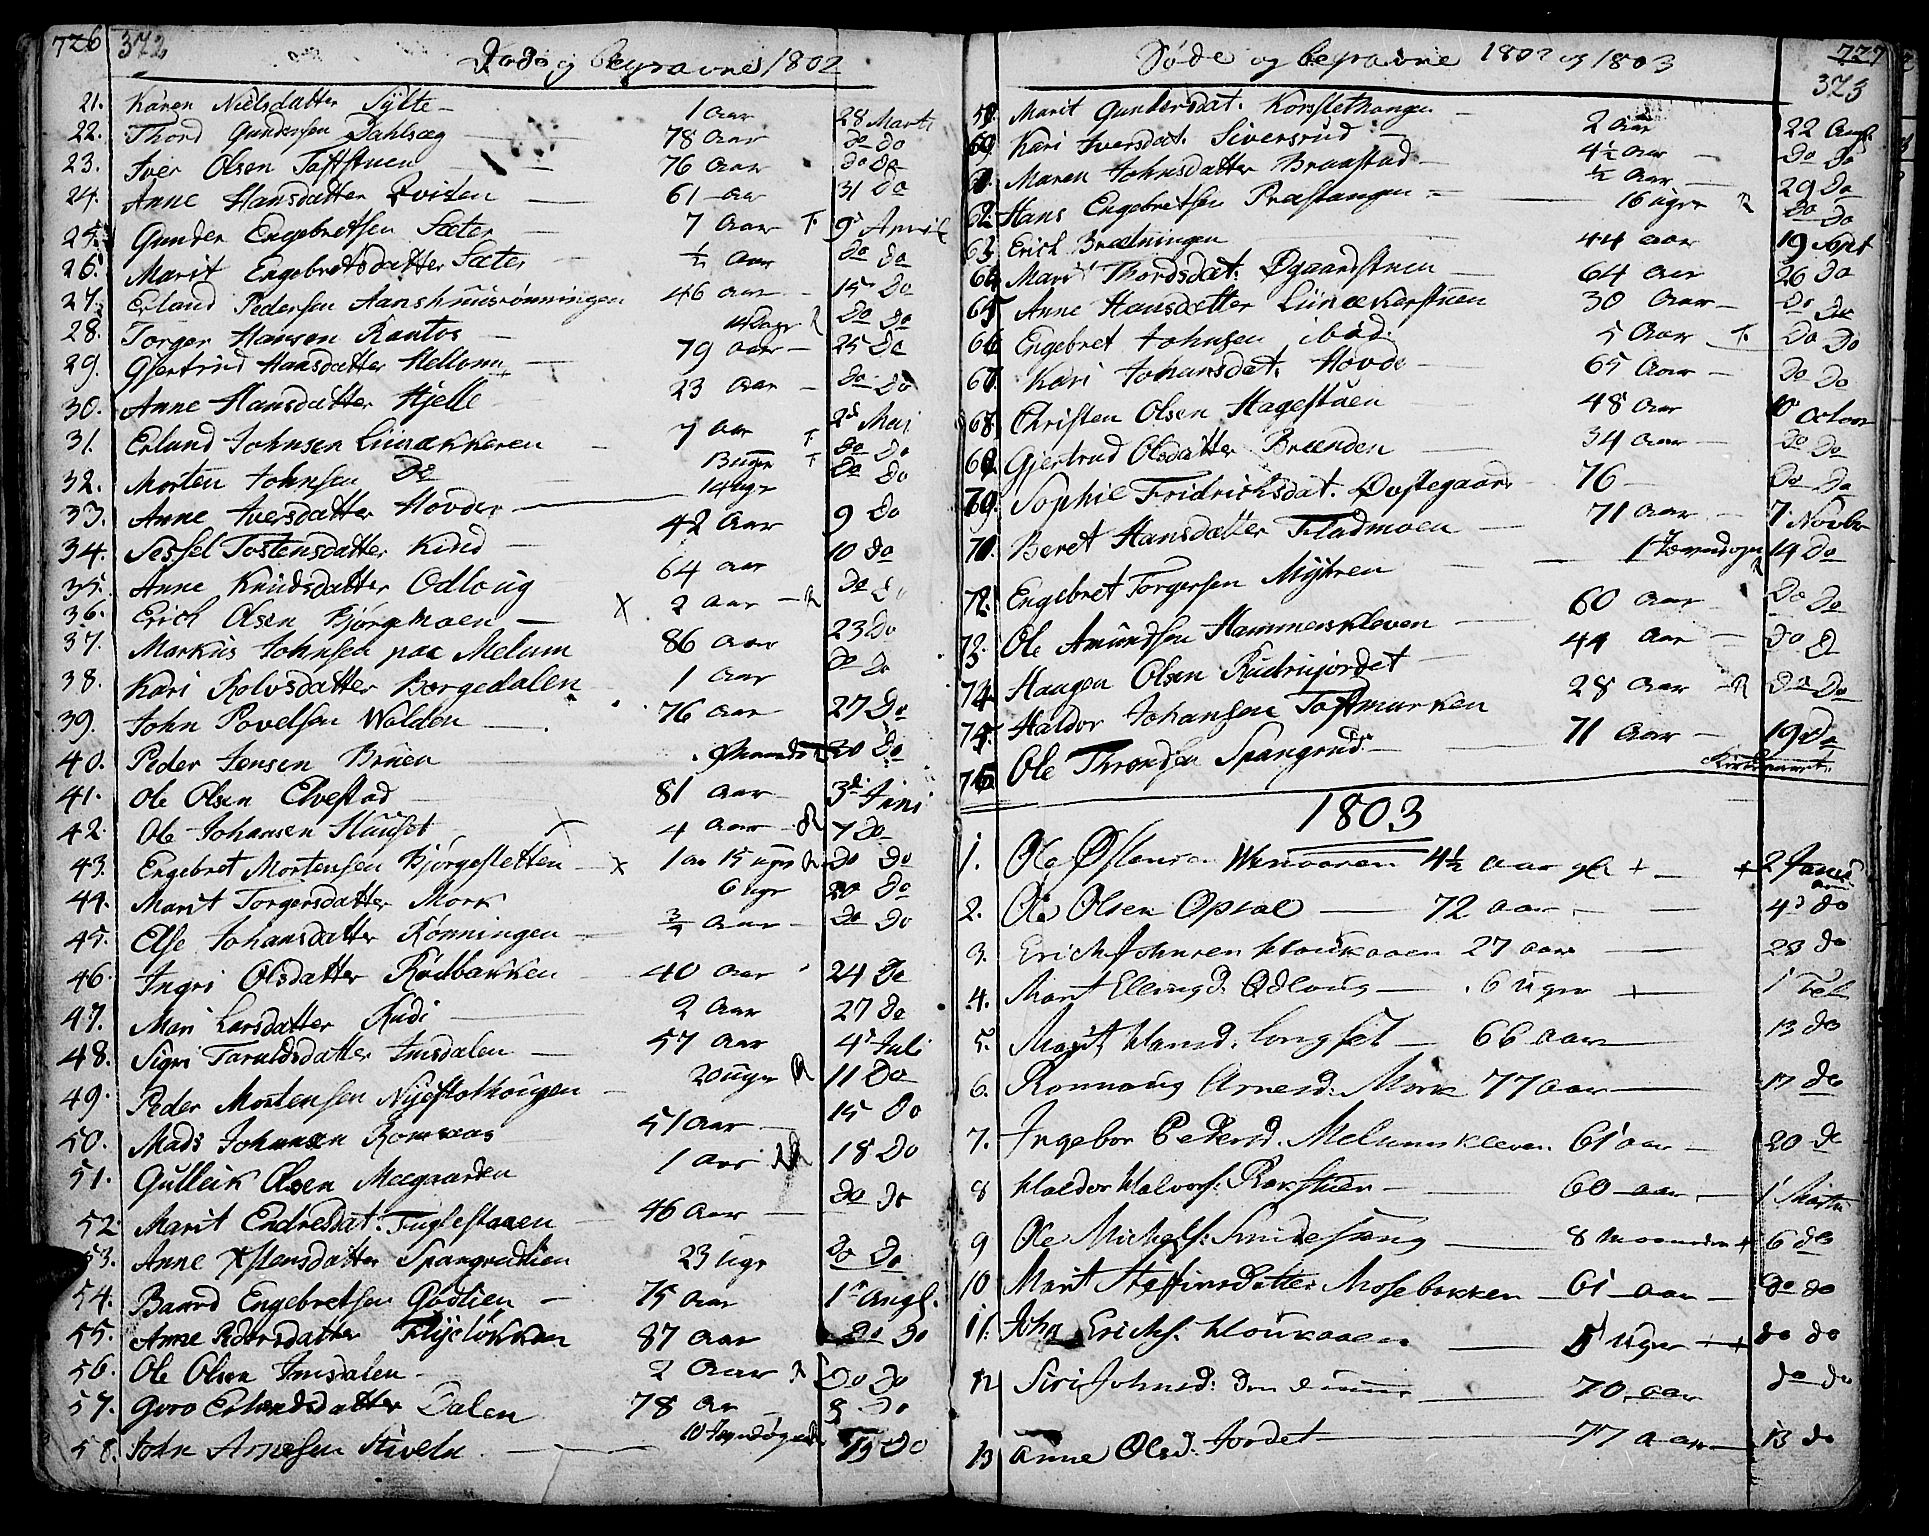 726 372
Døde og begravne 1802
21. Karen Nielsdatter Sylte — 1 Aar 28 Marti
22. Thord Gundersen Dahlsæg 78 Aar Do Do
23. Iver Olsen Toftstuen 76 Aar Do Do
24. Anne Hansdatter Qvisten — 61 — aar 31 Do
25. Gunder Engebretsen Sæter — 7 Aar T. 9d April
26. Marit Engebretsdatter Sæter ½ Aar Do Do
27. Erland Pedersen Aanshuusrønningen 46 aar 15 Do
28. Torger Hansen Kantos — 14 Dage Do Do
29. Gjertrud Hansdatter Mellom 79 aar — 25 Do
30. Anne Hansdatter Hjelle 23 aar — Do Do
31. Erland Johnsen Liinækkeren 7 aar T 2d Mai
32. Morten Johnsen Do 13 uger T Do Do
33. Anne Iversdatter Hovde — 14 ugr Do Do
34. Sessel Tostensdatter Kind — 42 Aar 9 Do
35. Anne Knudsdatter Odloug 64 aar 10 Do
36. Erich Olsen Bjørgmoen — X 2 aar — Do Do
37. Markus Johnsen paa Melum 86 aar 23 Do
38. Kari Rolvsdatter Borgedalen 1 aar Do Do
39. John Povelsen Wolden — 76 aar 27 Do
40. Peder Jensen Bruen 30 Do
41. Ole Olsen Elvestad 81 aar 3d Juni
42. Ole Johansen Huuset X 4 aar — 7 Do
43. Engebret Mortensen Bjørgesletten — X 1 aar 15 ugr Do Do
44. Marit Torgersdatter Mork 6 ugr 20 Do
45. Else Johansdatter Rønningen — ¾ aar — Do Do
46. Ingri Olsdatter Rødbakken — 40 aar 24 Do
47. Mari Larsdatter Rudi — 2 aar 27 Do
48. Sigri Taraldsdatter Imsdalen — 57 aar 4d Juli
49. Peder Mortensen Nyestolhougen — 20 uger 11 Do
50. Mads Johansen Romsaas 51 aar — 15 Do
51. Gulleik Olsen Moegaarden 1 aar 18 Do
52. Marit Endresdat. Fuglestuen — 46 aar — Do Do
53. Anne Østensdatter Spangrudlien 23 ugr Do Do
54. Baard Engebretsen Godlien — 75 aar 1d Augs.
55. Anne Pedersdatter Flyeløkken 87 aar Do Do
56. Ole Olsen Imsdalen — 2 Aar Do Do
57. Goro Erlandsdatter Dalen 78 ar 8 Do
58. John Arnesen Stivelen — 15 Do
Døde og begravne 1802 og 1803
727
373
59. Marit Gundersdat. Korslethaugen — 2 aar 22 Augs.
60 Kari Iversdat. Siversrud — 4½ aar — Do Do
61. Maren Johnsdatter Braastad — ½ aar — 29 Do
62 Hans Engebretsen Præstangen — 16 ugr Do Do
63. Erich Brætningen 44 aar 19 Sept
64 Mari Thordsdat. Øgaardstuen — 64 aar 26 Do
65 Anne Hansdatter Liinækerstuen 30 Aar — Do Do
66 Engebret Johnsen ibid. 5 Aar T. Do Do
67. Kari Johansdat. Hovde — 65 Aar — Do Do
68. Christen Olsen Hagestuen 48 aar 10 Octobr
69 Gjertrud Olsdatter Brænden 34 aar — Do Do
70. Sophie Fridrichsdat. Qvstegaard 76 — Do Do
71. Beret Hansdatter Fladmoen — 71 aar — 7 Novbr
72. Engebret Torgersen Myhren — 14 Do
73. Ole Amundsen Hammerskleven — 60 aar Do Do
74 Haagen Olsen Rudrujordet — 44 aar — Do D
75. Haldor Johansen Toftmarken 28 aar — Do Do
76 Ole Throndsen Spangrud — 71 aar — 19 Do
1803
1. Ole Østensen 4½ aar gl + — + 2 Januarii
2. Ole Olsen Opsal — 72 aar — — 4d do
3. Erich Johnsen Houkaaen 27 aar — 23 do
4. Marit Ellingsd. Odloug — 6 uger + 1 Feb
5. Marit Hansd. Longset — 66 aar 13 do
6. Ronnoug Arnesd. Mork 77 aar — 17 do
7. Ingebor Pedersd. Melumskleven 61 aar — 20 do
8 Haldor Halvors. Rorstuen — 60 aar — 1 Martii
9 Ole Michels. Smidesæng — 8 Maaneder + 6 do
10 Marit Steffensdatter Mosebakken — 61 aar — do do
11. John Erichs. Houkaaen — 5 uger + do do
12 Siri Johnsd. — 70 aar do do
13 Anne Olsd. Jordet — 77 aar — 13 do